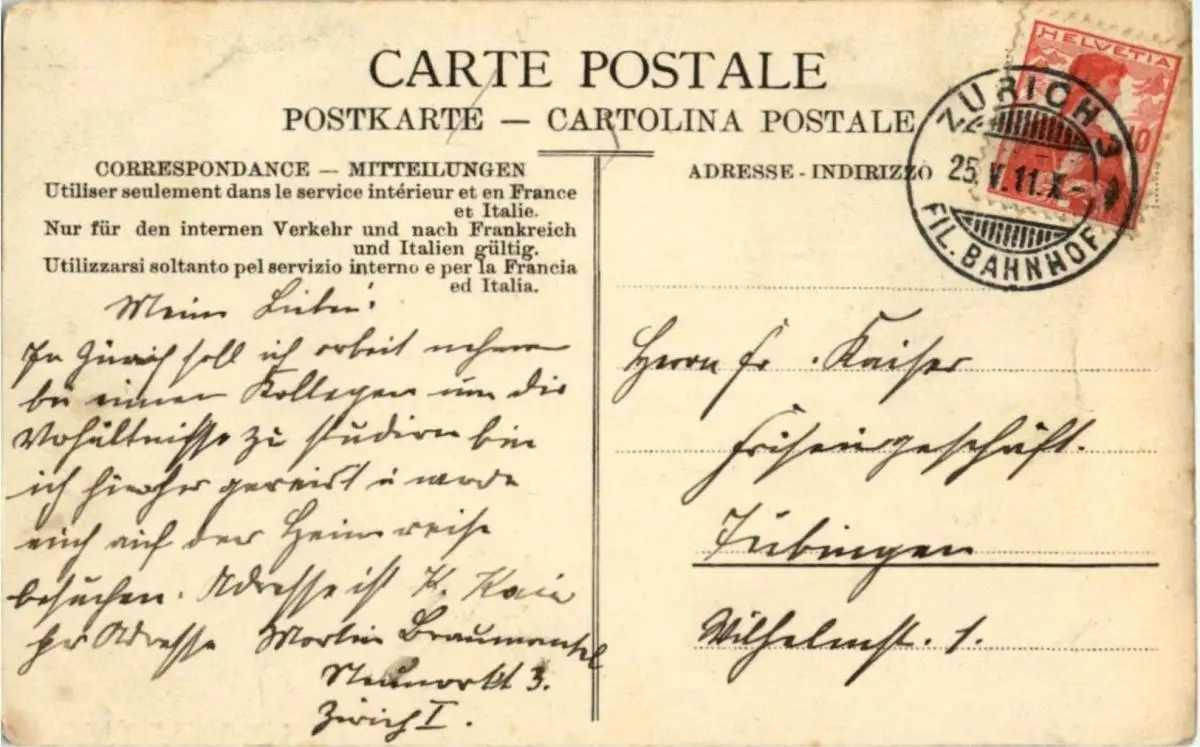 CARTE POSTALE
POSTKARTE — CARTOLINA POSTALE
CORRESPONDANCE — MITTEILUNGEN
Utiliser seulement dans le service intérieur et en France
et Italie.
Nur für den internen Verkehr und nach Frankreich
und Italien gültig.
Utilizzarsi soltanto pel servizio interno e per la Francia
ed Italia.
Meine Lieben!
In Zürich soll ich arbeit nehmen
bei einem Kollegen um die
Verhältnisse zu studieren bin
ich hierher gereist u werde
euch auf der Heimreise
besuchen. Adresse ist K.
pr Adresse Martin
Neumarkt 3.
Zürich I.
ADRESSE - INDIRIZZO
HELVETIA
10
ZÜRICH 3
25.V.11.X-
FIL. BAHNHOF
Herrn Fr. Kaiser
Friseurgeschäft.
Tübingen
Wilhelmst. 1.